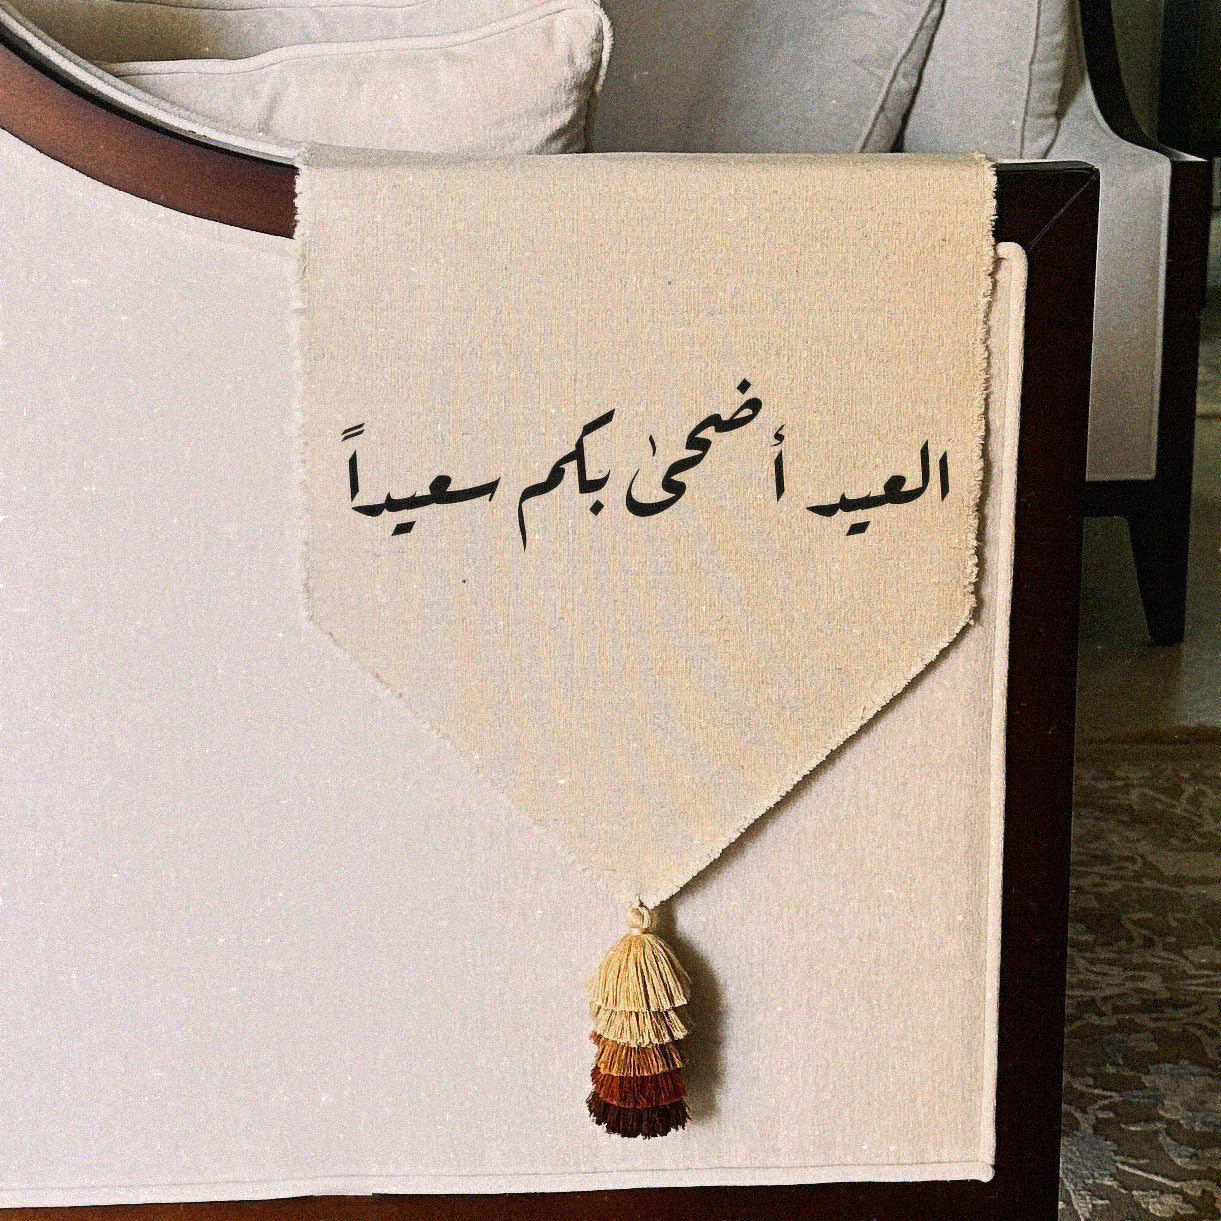 العيد أضحىٰ بكم سعيداً